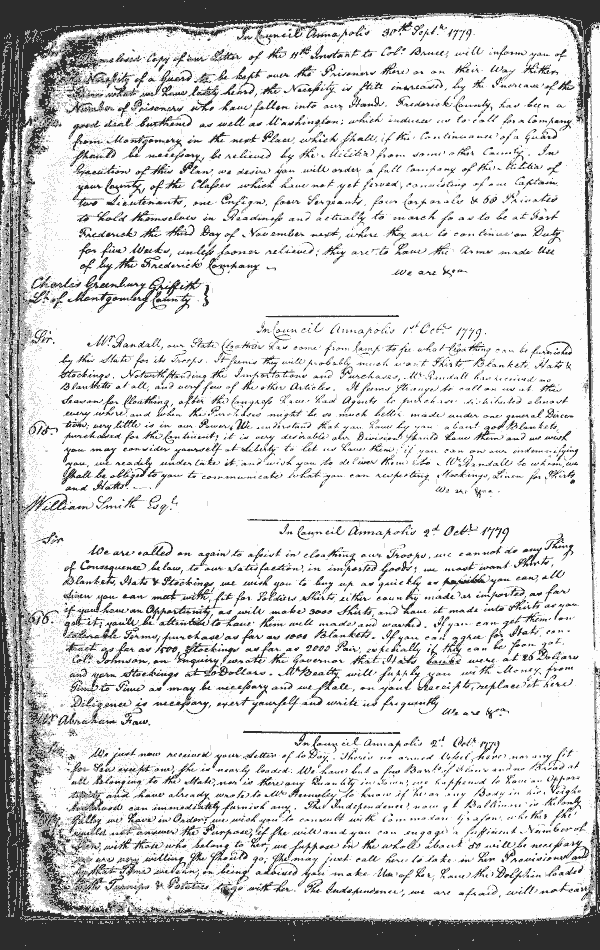 In Council Annapolis 30th Sept. 1779.
Sir
inclosed Copy of our Letter of the 11th Instant to Colo. Bruce, will inform you of
Necessity of a Guard to be kept over the Prisoners there or on their Way thither
from what we have lately heard, the Necessity is still increased, by the Increase of the
Number of Prisoners who have fallen into our Hand. Frederick County, has been a
good deal burthened as well as Washington; which induces us to call for a Company
from Montgomery in the next Place, which shall, if the Continuance of a Guard
should be necessary, be relieved by the Militia from some other County. In
Execution of this Plan, we desire you will order a full Company of the Militia of
your County, of the Classes which have not yet served, consisting of one Captain
two Lieutenants, one Ensign, four Sergeants, four Corporals & 68 Privates
to hold themselves in Readiness and actually to march so as to be at Fort
Frederick the third Day of November next, where they are to continue on Duty
for five Weeks, unless sooner relieved; they are to have the Arms made Use
of by the Frederick Company
We are &ca.
Charles Greenbury Griffith
Lt. of Montgomery County
In Council Annapolis 1st Octr. 1779.
Sir.
Mr. Randall, our State Clothier has come from Camp to see what Cloathing can be furnished
by this State for its Troops. It seems they will probably much want Shirts, Blankets, Hats &
Stockings. Notwithstanding the Importations and Purchases, Mr. Randall has received no
Blankets at all, and very few of the other Articles. It seems strange he call on us at this
Season for Cloathing, after the Congress have had Agents to purchase distributed almost
every where and when the Purchases might be so much better made under one general Direc
tion; very little is in our Power. We understand that you have by you about 400 Blankets,
615.
purchased for the Continent; it is very desirable our Division should have them and we wish
you may consider yourself at Liberty to let us have them; if you can on our indemnifying
you, we readily undertake it, and wish you to deliver them to Mr. Randall to whom, we
shall be obliged to you to communicate what you can respecting Stockings, Linen for Shirts
and Hatts.
We are &ca.
William Smith Esqr.
In Council Annapolis 2d. Octr. 1779
Sir
We are called on again to assist in cloathing our Troops, we cannot do any Thing
of Consequence below, to our Satisfaction, in imported Goods; we most want Shirts,
Blankets, Hats & Stockings, we wish you to buy up as quickly as possible you can, all
Linen you can meet with, fit for Soldiers Shirts either country made or imported, as far
if you have an Opportunity, as will make 3000 Shirts, and have it made into Shirts as you
616.
get it; you'll be attentive to have them well made and marked. If you can get them on
tolerable Terms, purchase as far as 1000 Blankets. If you can agree for Hats, con-
tract as far as 1500, Stockings as far as 2000 Pair, especially if they can be soon got.
Colo. Johnson, on Enquiry, wrote the Governor that Hats were at 25 Dollars
and yarn Stockings at 20 Dollars. Mr. Beatty will supply you with Money, from
Time to Time as may be necessary and we shall, on your Receipts, replace it here
Diligence is necessary, exert yourself and write us frequently
We are &ca.
Mr. Abraham Faw.
In Council Annapolis 2d. Octr. 1779
Sir
We just now received your Letter of to Day. There is no armed Vessel, here, nor any fit
for Sea except one, she is nearly loaded. We have but a few Barrls. of Flour and no Bread at
all Belonging to the State, nor is there any Quantity in Town; we happened to have an Oppor
tunity and have already wrote to Mr. Hemsley to know if he or any Body in his Neigh-
bourhood can immediately furnish any. The Independence, now at Baltimore is the only
Galley we have in Order; we wish you to consult with Commodore Grason, whether she
would not answer the Purpose; if she will and you can engage a sufficient Number of
Men, with those who belong to her, we suppose in the whole about 50 will be necessary
we are very willing she should go; she may just call here to take in her Provisions and
by that Time we can, on being advised you make Use of her, have the Dolphin loaded
with Turnips & Potatoes to go with her. The Independence, we are afraid, will not carry